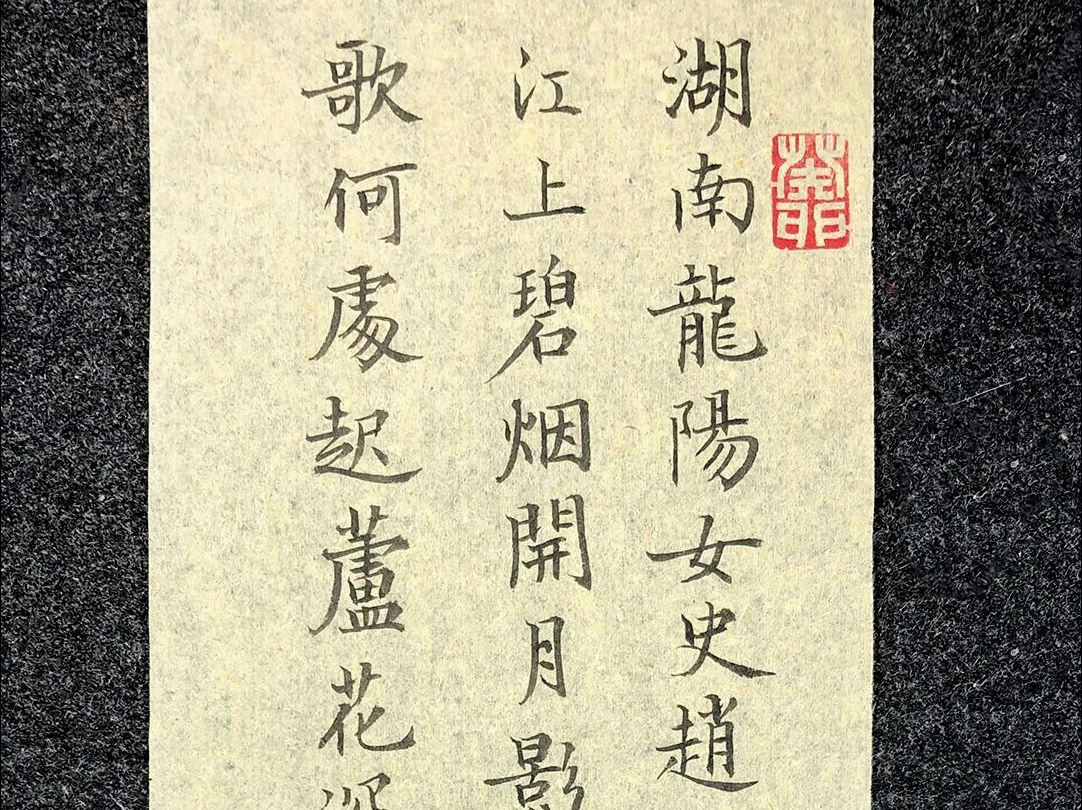 湖南龍陽女史趙
江上碧烟開月影
歌何處起蘆花深